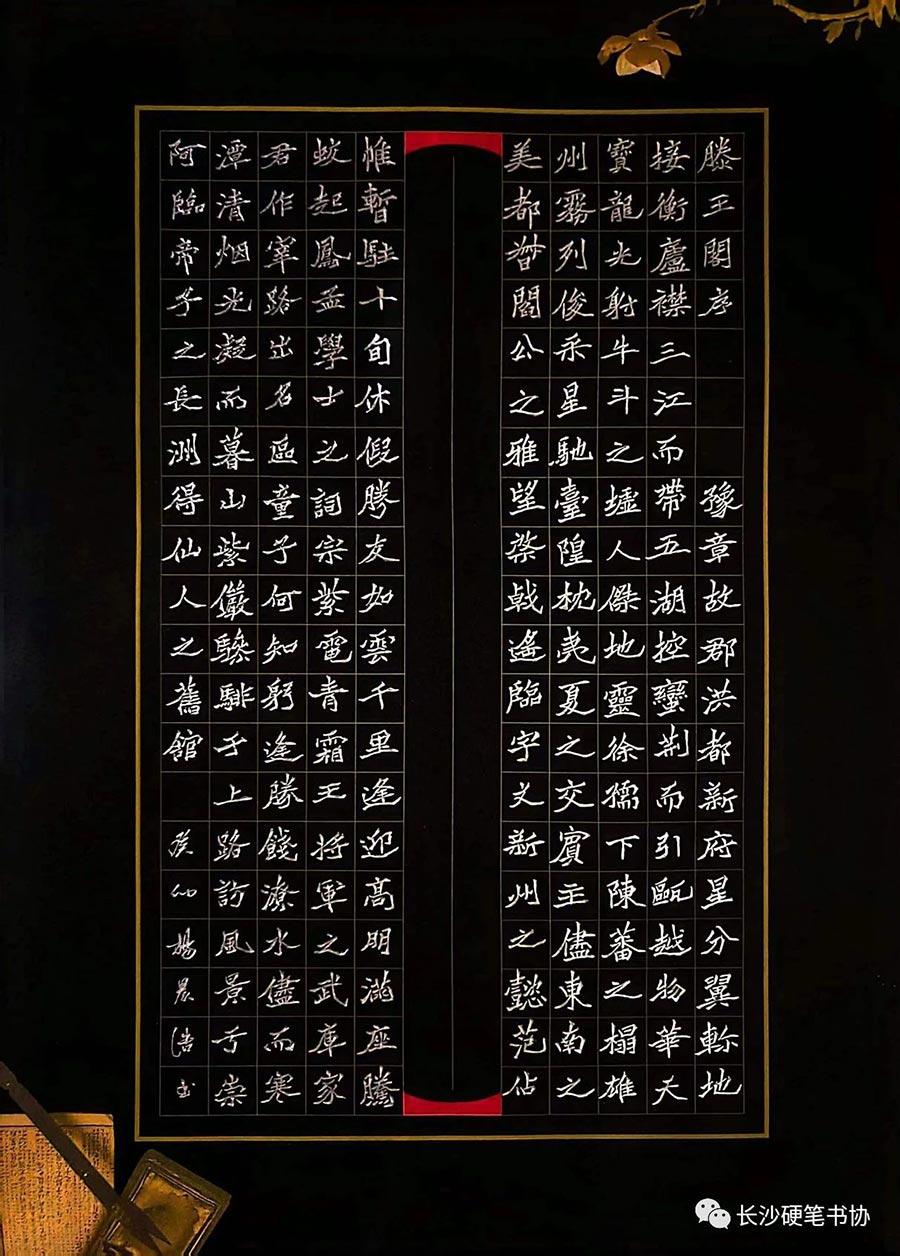 滕王閣序 豫章故郡洪都新府星分翼軫地
接衡廬襟三江而帶五湖控蠻荆而引甌越物華天
寶龍光射牛斗之墟人傑地靈徐孺下陳蕃之榻雄
州霧列俊采星馳臺隍枕夷夏之交賓主儘東南之
美都督閻公之雅望棨戟遙臨宇文新州之懿范佔
惟暫駐十旬休假勝友如雲千里逢迎高明滿座騰
蛟起鳳孟學士之詞宗紫電青霜王將軍之武庫家
君作宰路出名區童子何知躬逢勝餞潦水儘而寒
潭清烟光凝而暮山紫儼驂騑于上路訪風景于崇
阿臨帝子之長洲得仙人之舊館 癸卯楊晨浩書
长沙硬笔书协